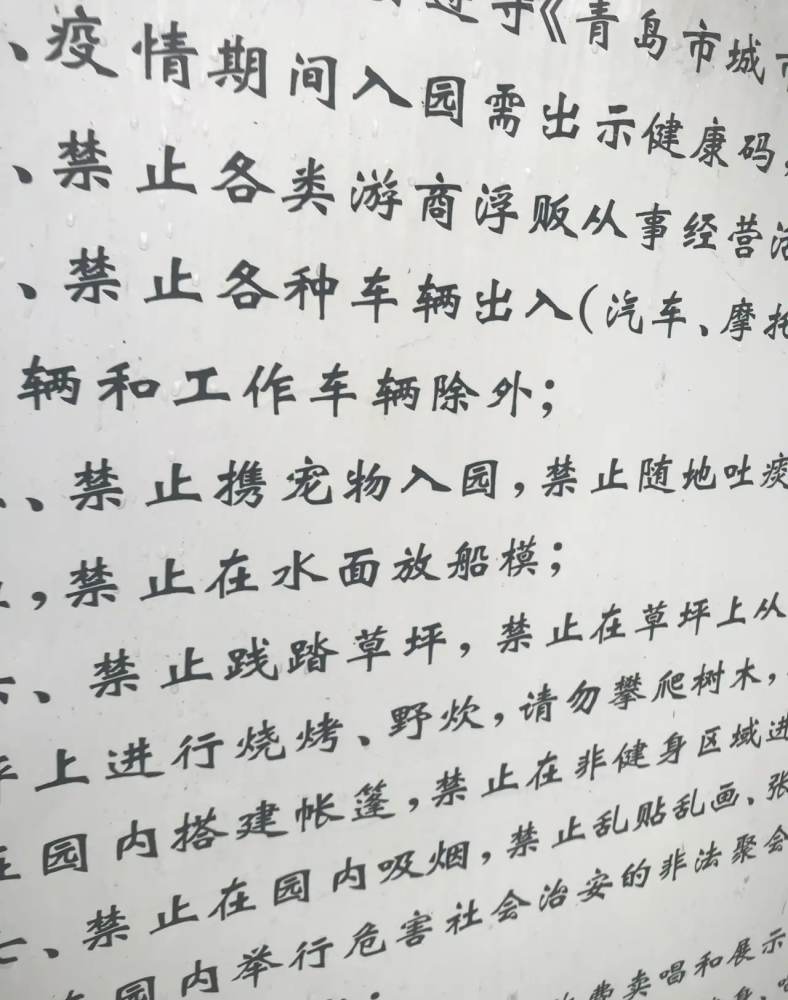 守《青岛市城
、疫情期间入园需出示健康码，
、禁止各类游商浮贩从事经营活
、禁止各种车辆出入(汽车、摩托
辆和工作车辆除外；
、禁止携宠物入园，禁止随地吐痰
，禁止在水面放船模；
、禁止践踏草坪，禁止在草坪上从
坪上进行烧烤、野炊，请勿攀爬树木，
在园内搭建帐篷，禁止在非健身区域进
七、禁止在园内吸烟，禁止乱贴乱画、张
在园内举行危害社会治安的非法聚会
费卖唱和展示